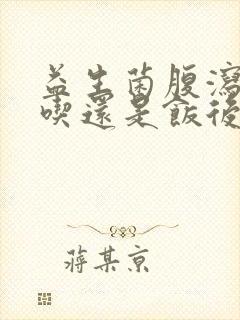 益生菌腹瀉
喫還是飯後
蔣某京